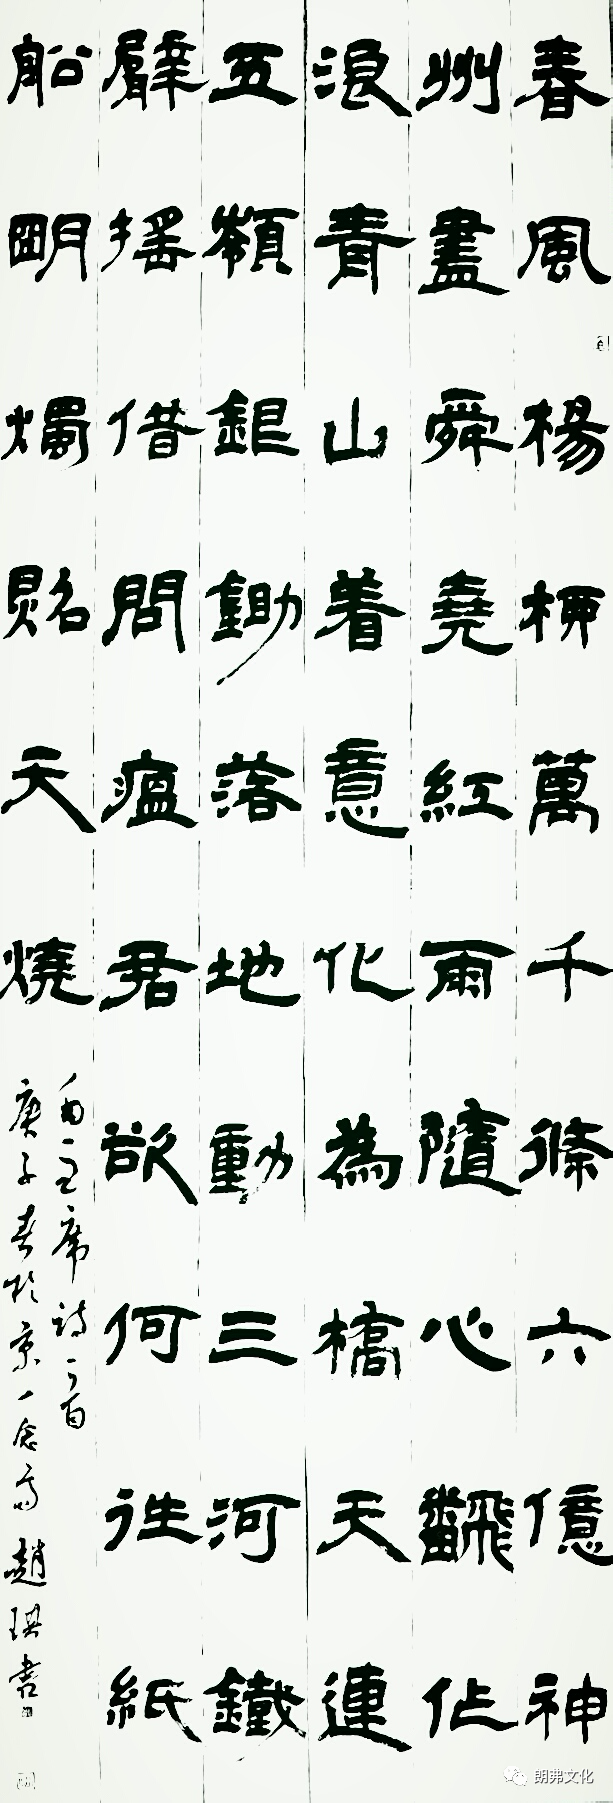 春風楊柳萬千條六億神
州盡舜堯紅雨隨心飜作
浪青山着意化為橋天連
五嶺銀鋤落地動三河鐵
臂搖借問瘟君欲何往紙
船明燭照天燒
毛主席詩一首
庚子春於京一念齋趙琪書
朗弗文化